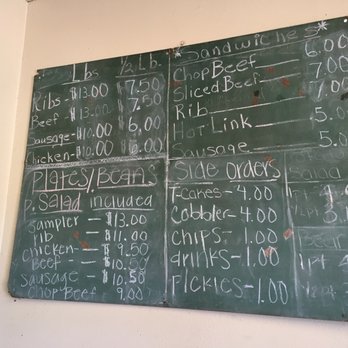 Lbs 1/2 Lb.
Ribs - $13.00 7.50
Beef - $13.00 7.50
Sausage - $10.00 6.00
Chicken - $10.00 6.00
Plates/Beans
P. Salad included
Sampler - $13.00
rib - $11.00
chicken - $9.50
Beef - $10.50
Sausage - $10.50
Chop Beef 9.00
*Sandwiches*
Chop Beef 6.00
Sliced Beef 7.00
Rib 7.00
Hot Link 5.0
Sausage 5.0
Side Orders
T-cakes - 4.00
Cobbler - 4.00
chips - 1.00
drinks - 1.00
Pickles - 1.00
Salad